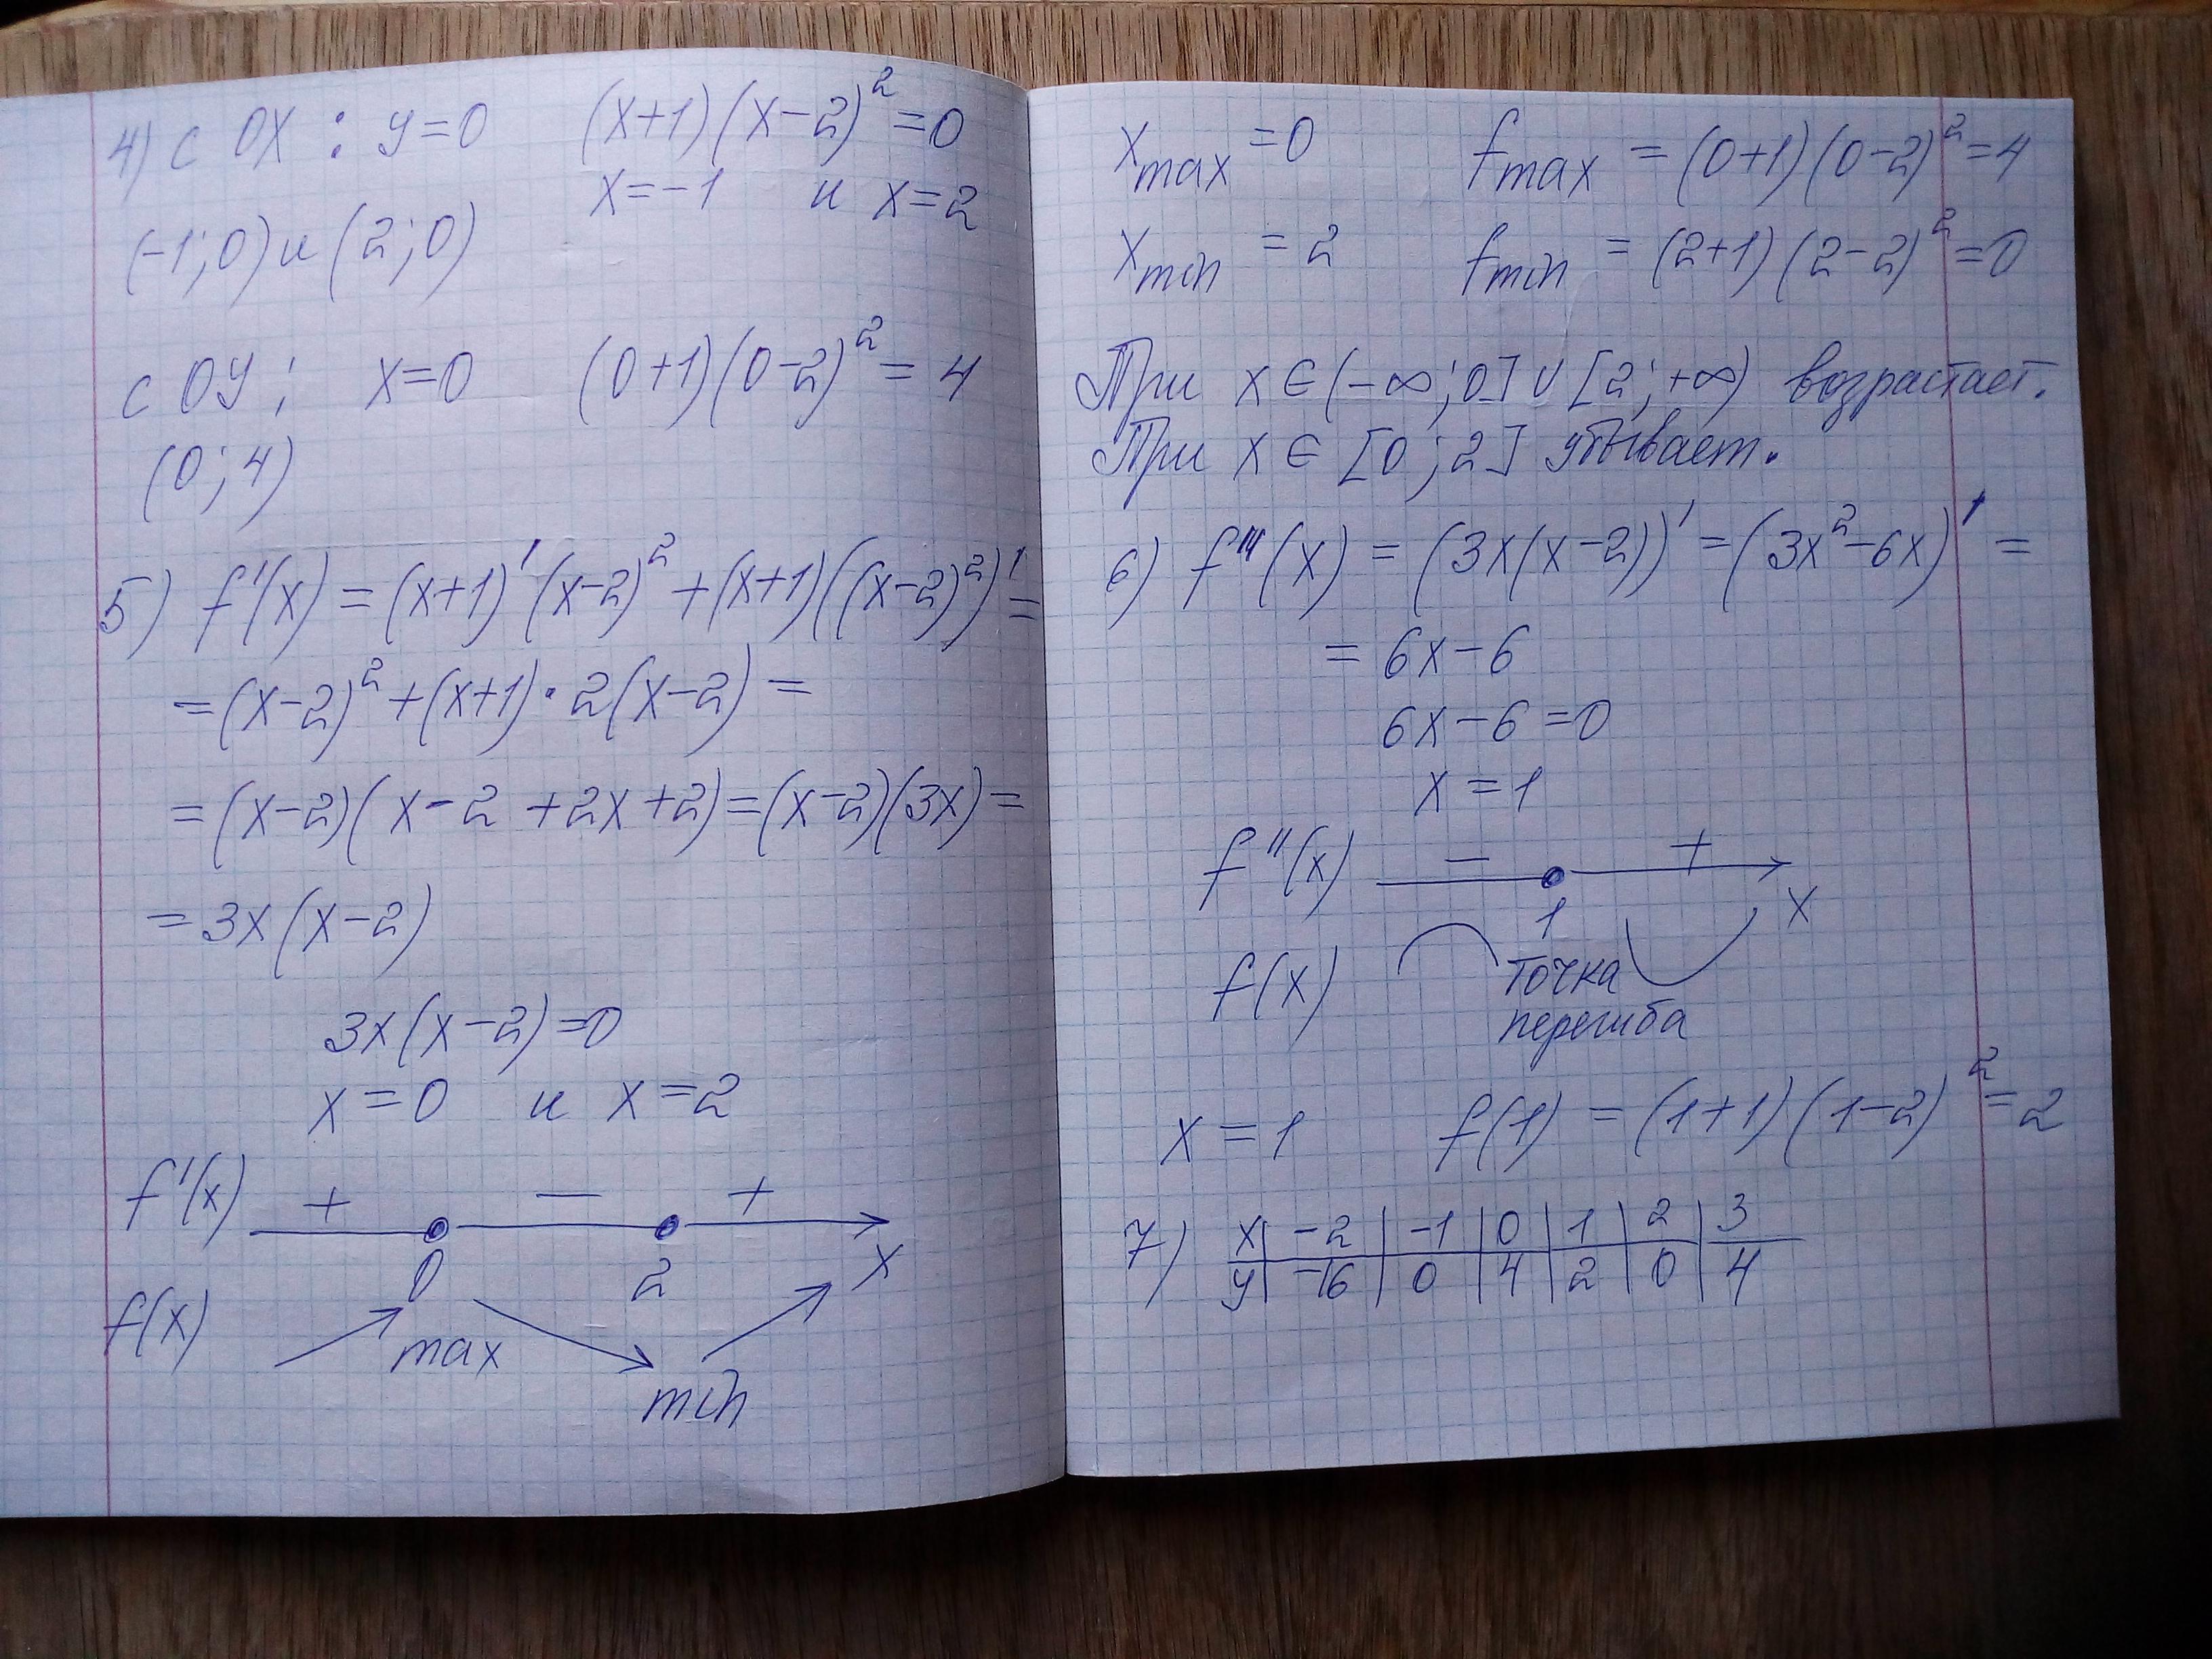 4) с OX : y=0 (x+1)(x-2)²=0
x=-1 и x=2
(-1;0) и (2;0)
с OY ; x=0 (0+1)(0-2)²=4
(0;4)
5) f'(x) = (x+1)'(x-2)²+(x+1)((x-2)²)'=
=(x-2)²+(x+1)·2(x-2)=
=(x-2)(x-2+2x+2)=(x-2)(3x)=
=3x(x-2)
3x(x-2)=0
x=0 и x=2
f'(x) + — +
0 2 x
f(x)
max
min
x max =0 f max = (0+1)(0-2)²=4
x min = 2 f min = (2+1)(2-2)²=0
При x∈(-∞;0]∪[2;+∞) возрастает.
При x∈[0;2] убывает.
6) f'''(x) = (3x(x-2))'=(3x²-6x)'=
= 6x-6
6x-6=0
x=1
f''(x) — +
1 x
f(x) точка
перегиба
x=1 f(1) = (1+1)(1-2)²=2
7) x | -2 | -1 | 0 | 1 | 2 | 3
y | -16 | 0 | 4 | 2 | 0 | 4